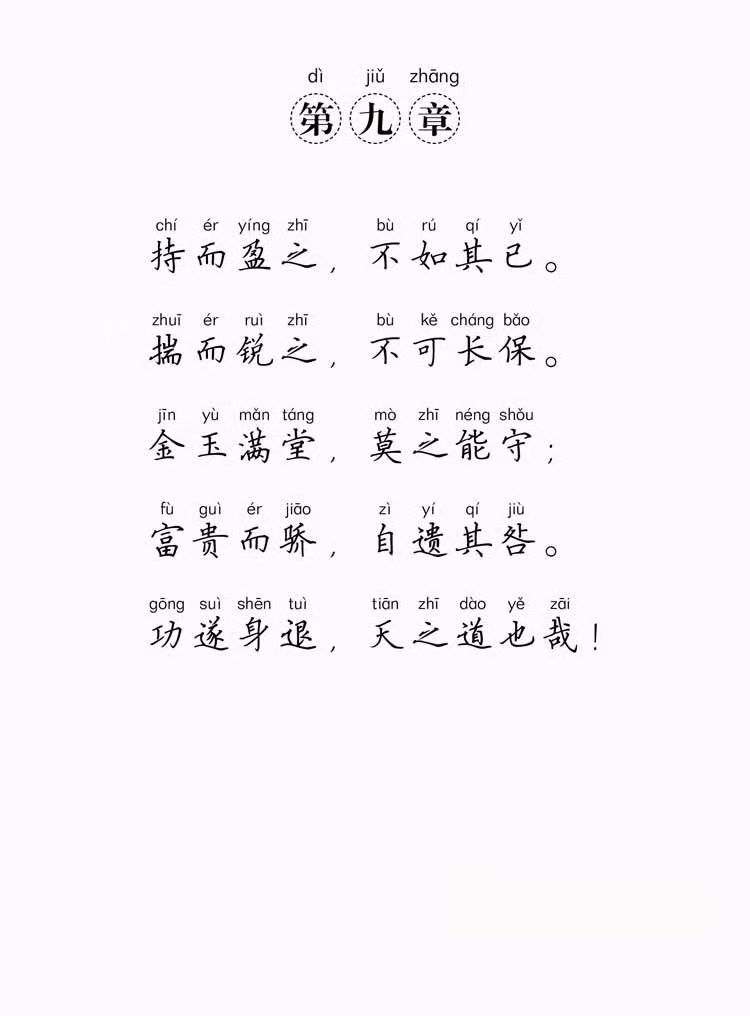 dì jiǔ zhāng
第九章
chí ér yíng zhī bù rú qí yǐ
持而盈之，不如其已。
zhuī ér ruì zhī bù kě cháng bǎo
揣而锐之，不可长保。
jīn yù mǎn táng mò zhī néng shǒu
金玉满堂，莫之能守；
fù guì ér jiāo zì yí qí jiù
富贵而骄，自遗其咎。
gōng suì shēn tuì tiān zhī dào yě zāi
功遂身退，天之道也哉！